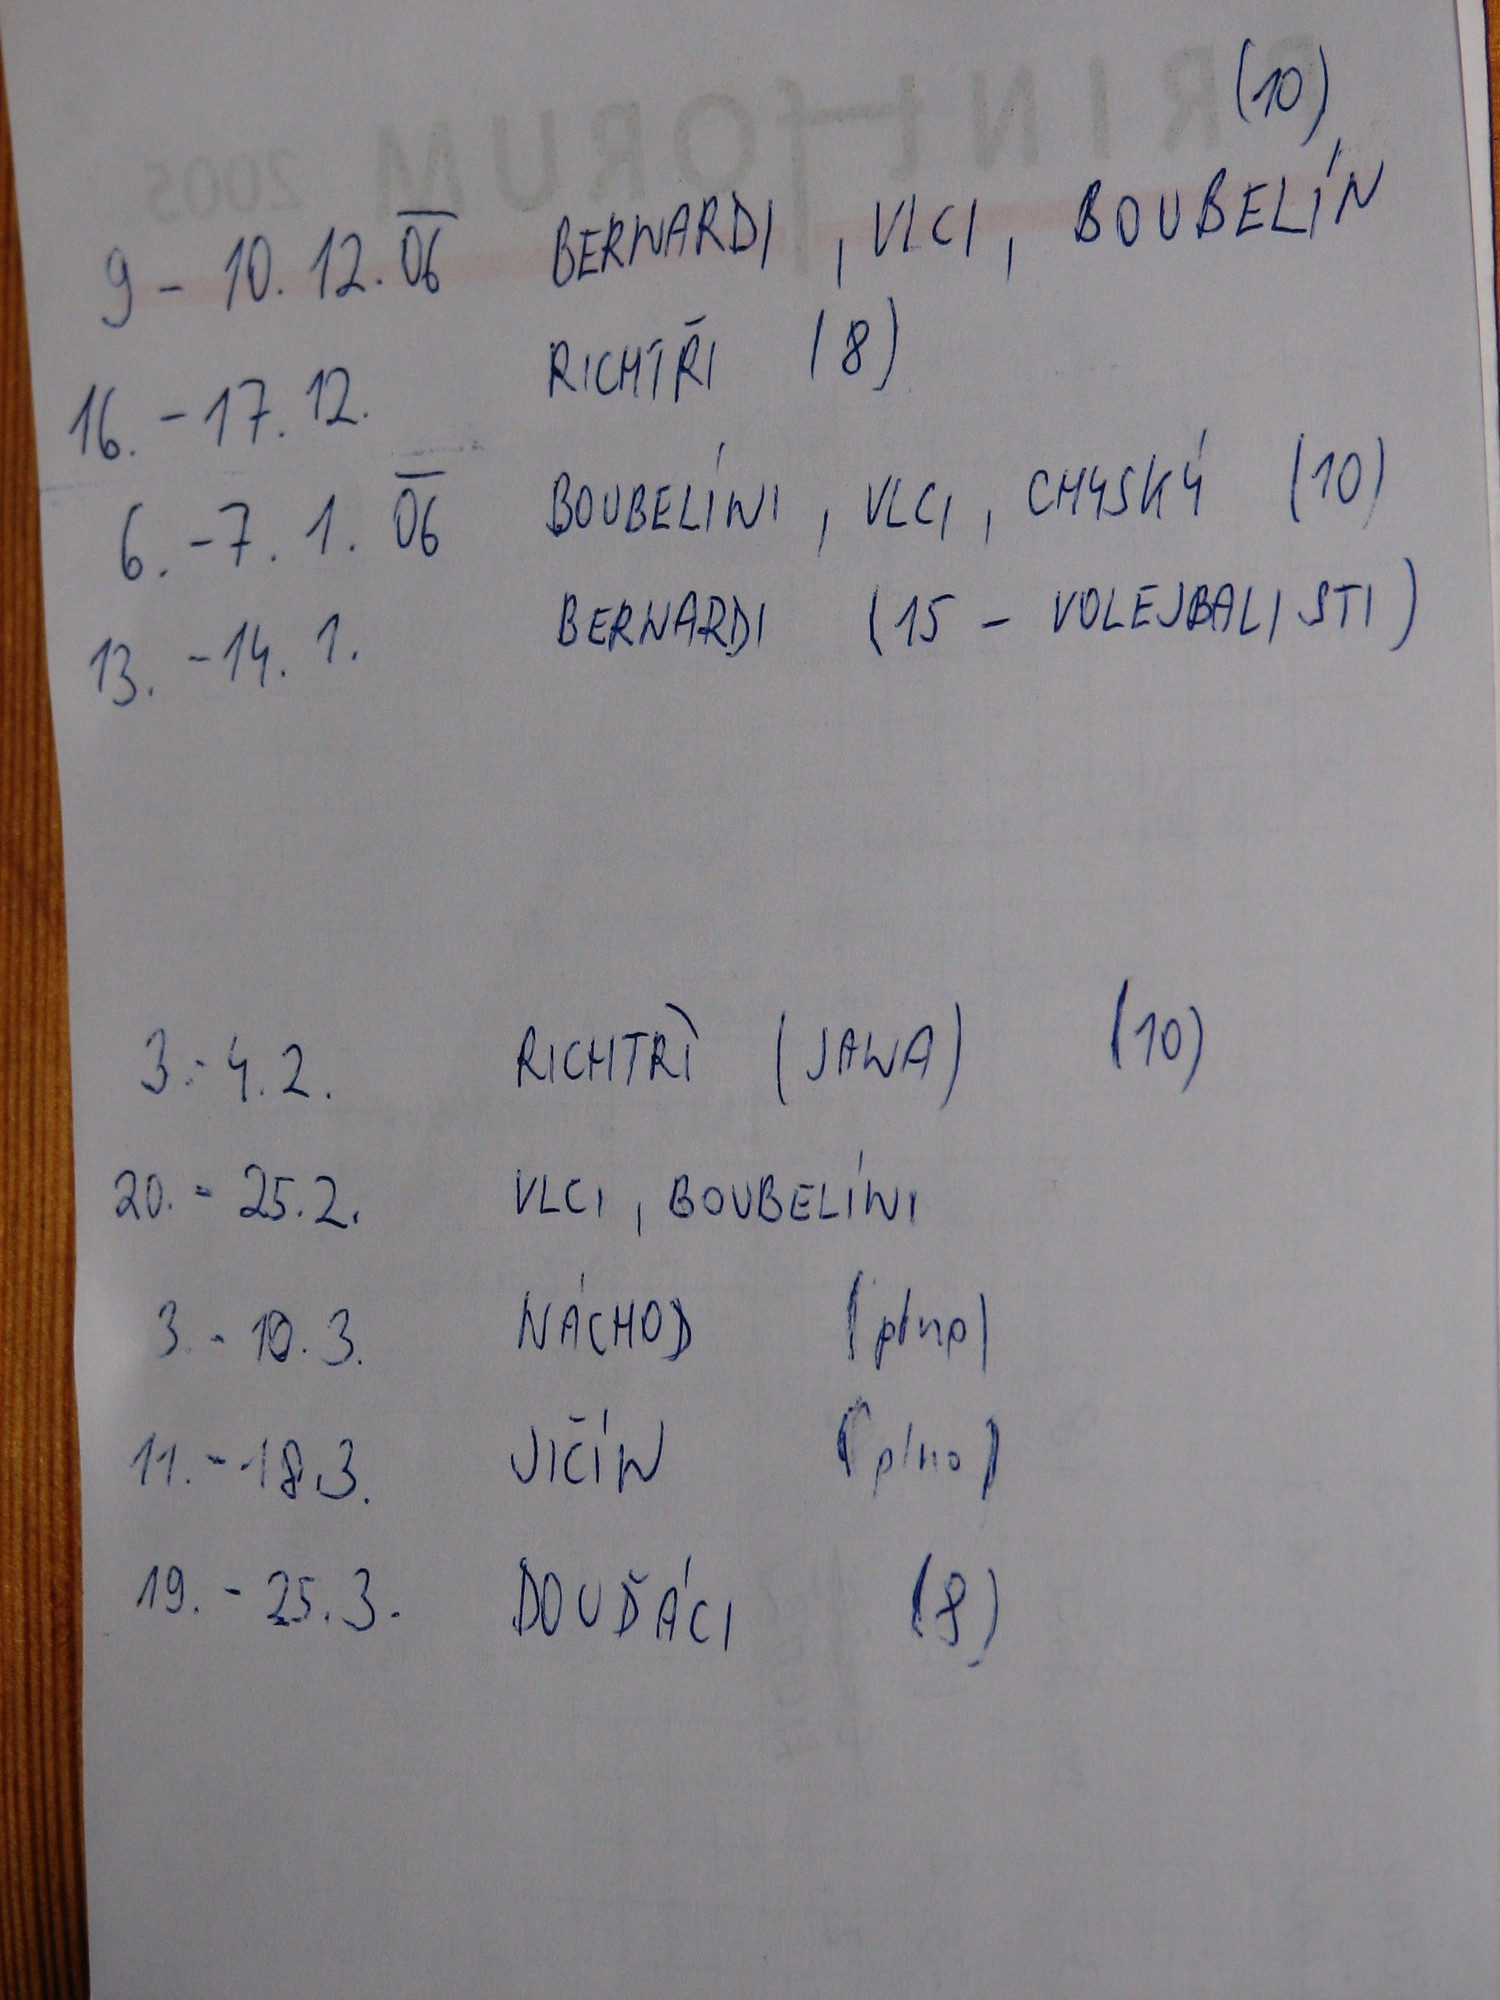 PRINt fORUM 2005
(10)
9 - 10. 12. 06 BERNARDI, VLCI, BOUBELÍN
16. - 17. 12. RICHTŘI (8)
6. - 7. 1. 06 BOUBELÍNI, VLCI, CHYSKÝ (10)
13. - 14. 1. BERNARDI (15 - VOLEJBALISTI)
3. - 4. 2. RICHTŘI (JAWA) (10)
20. - 25. 2. VLCI, BOUBELÍNI
3. - 10. 3. NÁCHOD (plno)
11. - 18. 3. JIČÍN (plno)
19. - 25. 3. DOUĎÁCI (8)